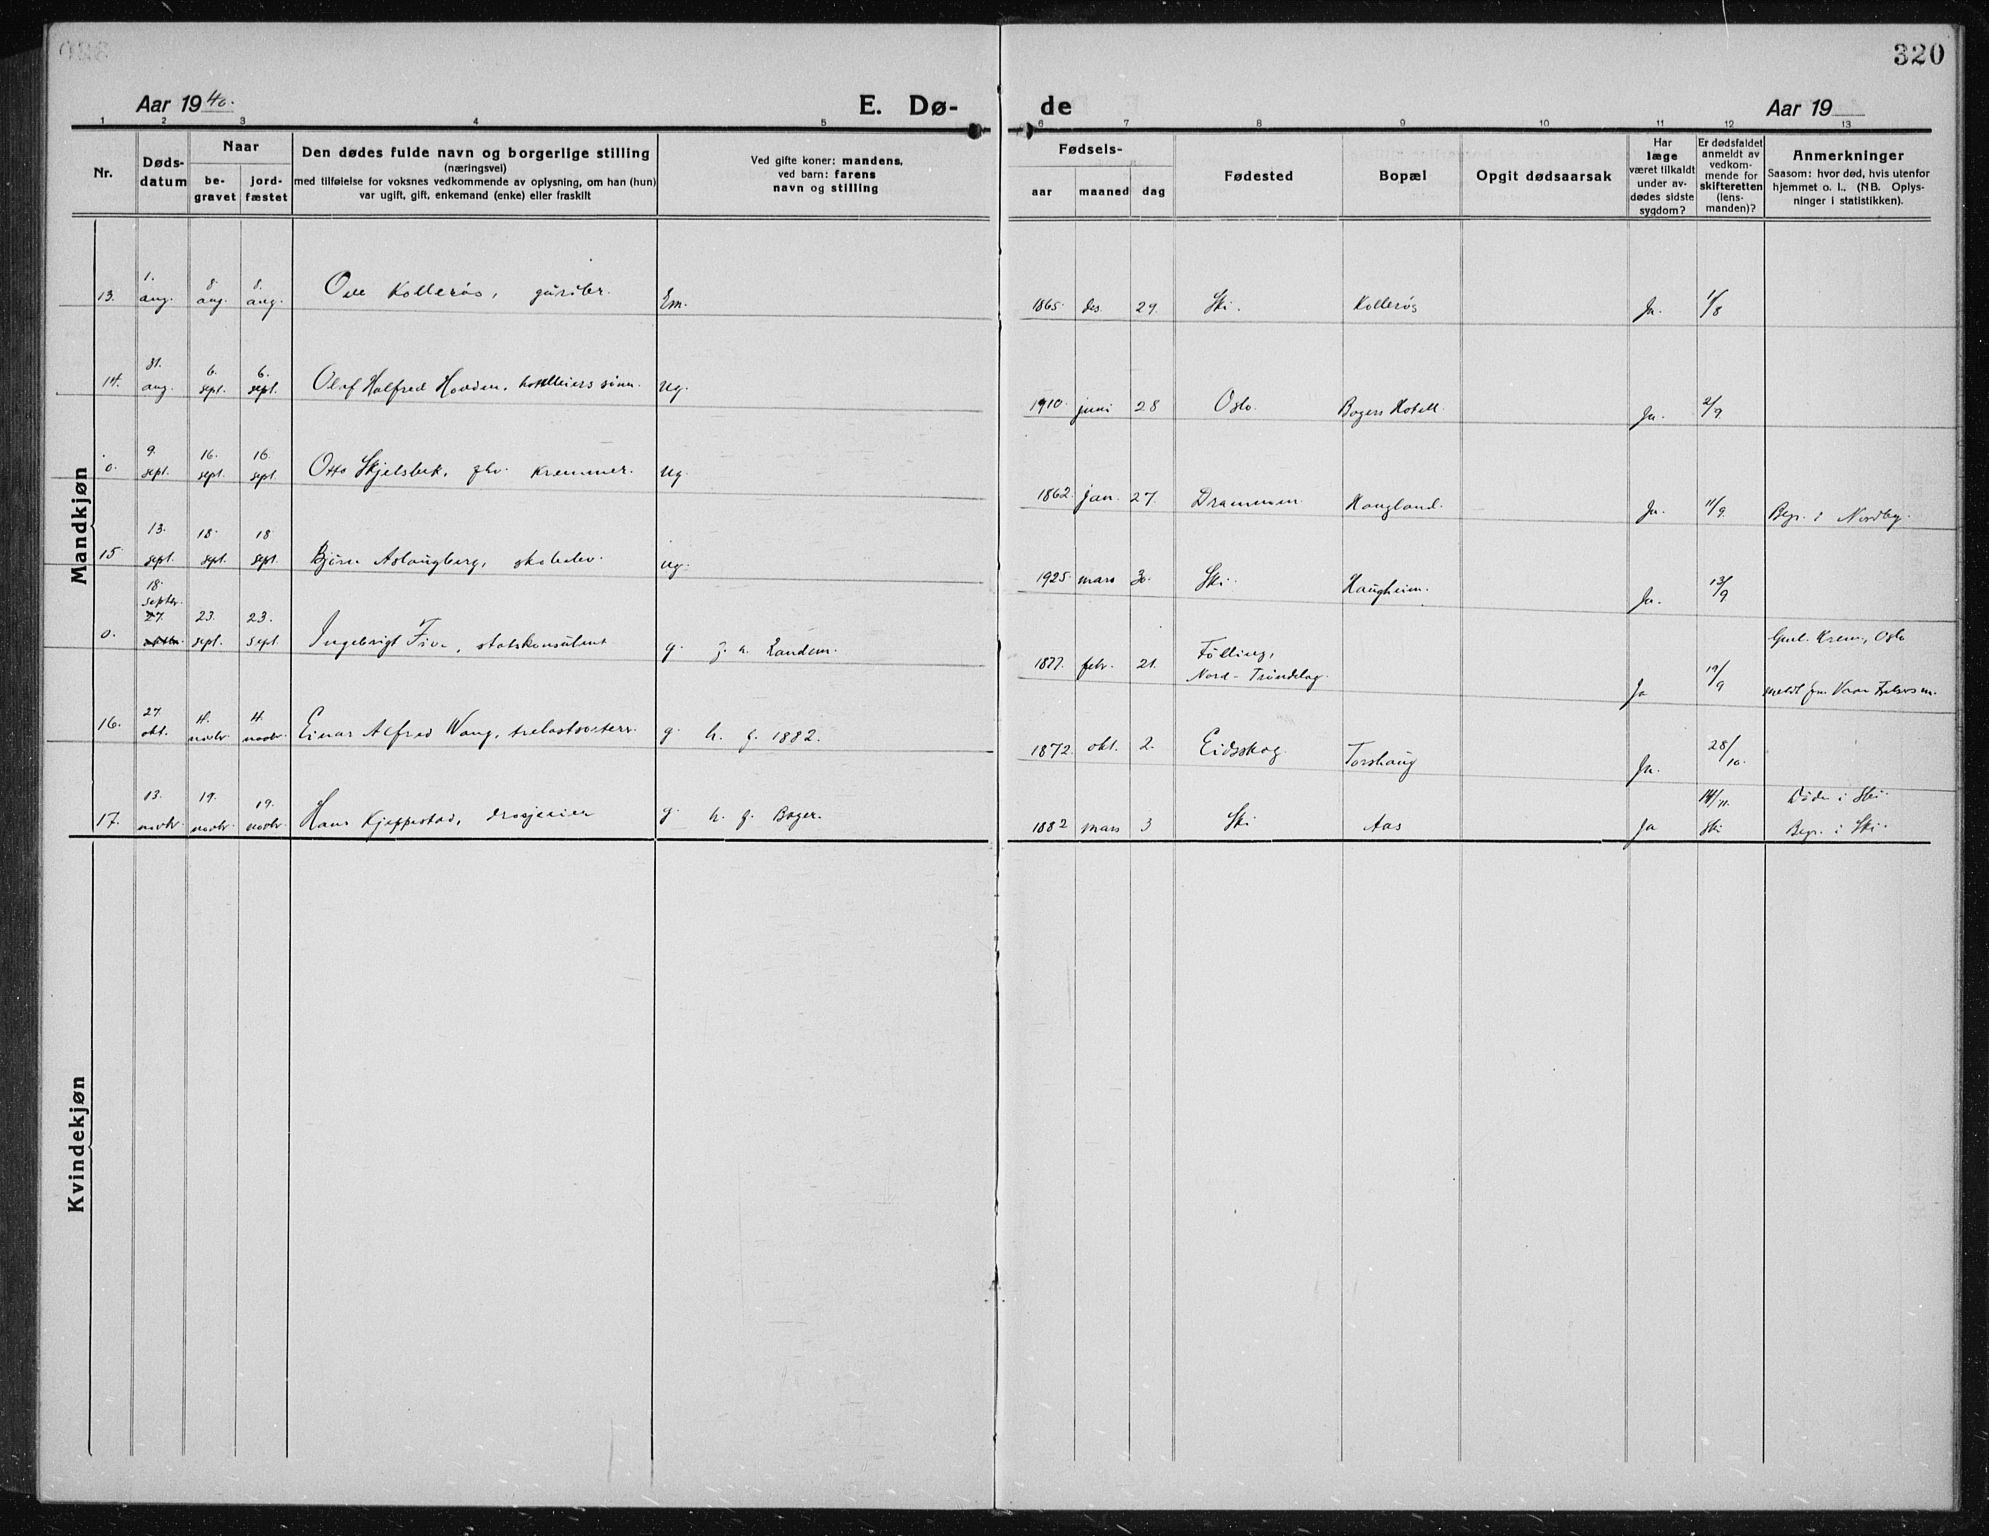 320
Aar 1940.
E. Dø-
de
Aar 19
1 2 3 4 5 6 7 8 9 10 11 12 13
Nr.
Døds-
datum
Naar
be-
gravet
jord-
fæstet
Den dødes fulde navn og borgerlige stilling
(næringsvei)
med tilføielse for voksnes vedkommende av oplysning, om han (hun)
var ugift, gift, enkemand (enke) eller fraskilt
Ved gifte koner: mandens,
ved barn: farens
navn og stilling
Fødsels-
aar maaned dag
Fødested
Bopæl
Opgit dødsaarsak
Har
læge
været tilkaldt
under av-
dødes sidste
sygdom?
Er dødsfaldet
anmeldt av
vedkom-
mende for
skifteretten
(lens-
manden)?
Anmerkninger
Saasom: hvor død, hvis utenfor
hjemmet o. l., (NB. Oplys-
ninger i statistikken).
Mandkjøn
13. 1. aug. 8. aug. 8. aug. Ove Kollerøs, Em. 1865. des. 29. Ski. Kollerøs Ja. 1/8
14. 31. aug. 6. sept. 6. sept. Olaf Halfred Hovden, hotelleiers sønn. ug. 1910. juni 28 Oslo. Bøgers Hotell. Ja. 2/9
0. 9. sept. 16. sept. 16. sept. Otto Skjelsbek, fhv. kremmer. ug. 1862. jan. 27. Drammen Haugland. Ja. 11/9. Begr. i Nordby.
15. 13. sept. 18. sept. 18 sept. Bjørn Aslaugberg, skoleelev. ug. 1925. mars 30. Ski. Haugheim. Ja. 13/9
0. 18. septbr. 27. 23. sept. 23. sept. Ingebrigt Five, statskonsulent g. 1877. febr. 21. Følling, Nord-Trøndelag. Ja 19/9 Gml. Krem., Oslo
16. 27. okt. 4. novbr. 4. novbr. Einar Alfred Wang, g. h. f. 1882. 1872. okt. 2. Eidsskog. Torshaug Ja. 28/10.
17. 13. novbr. 19. novbr. 19. novbr. Hans Kjeppestad, drosjeeier g. h. f. Bøger. 1882 mars 3 Ski Aas Ja 14/11. Ski Døde i Ski. Begr. i Ski.
Kvindekjøn